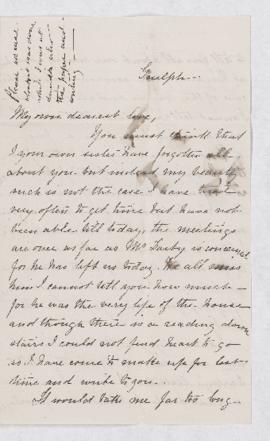 Please excuse
Guelph—
My own dearest love,
You must not think that
I your own sister have forgotten all
about you but indeed my beauty
such is not the case I have tried
very often to get time but have not
been able till today, the meetings
are over as far as Mr Early is concerned
for he has left us today. We all miss
him I cannot tell you how much—
for he was the very life of the house
and though there is a reading down
stairs I could not find heart to go
so I have come to make up for lost
time and write to you.
It would take me far too long—